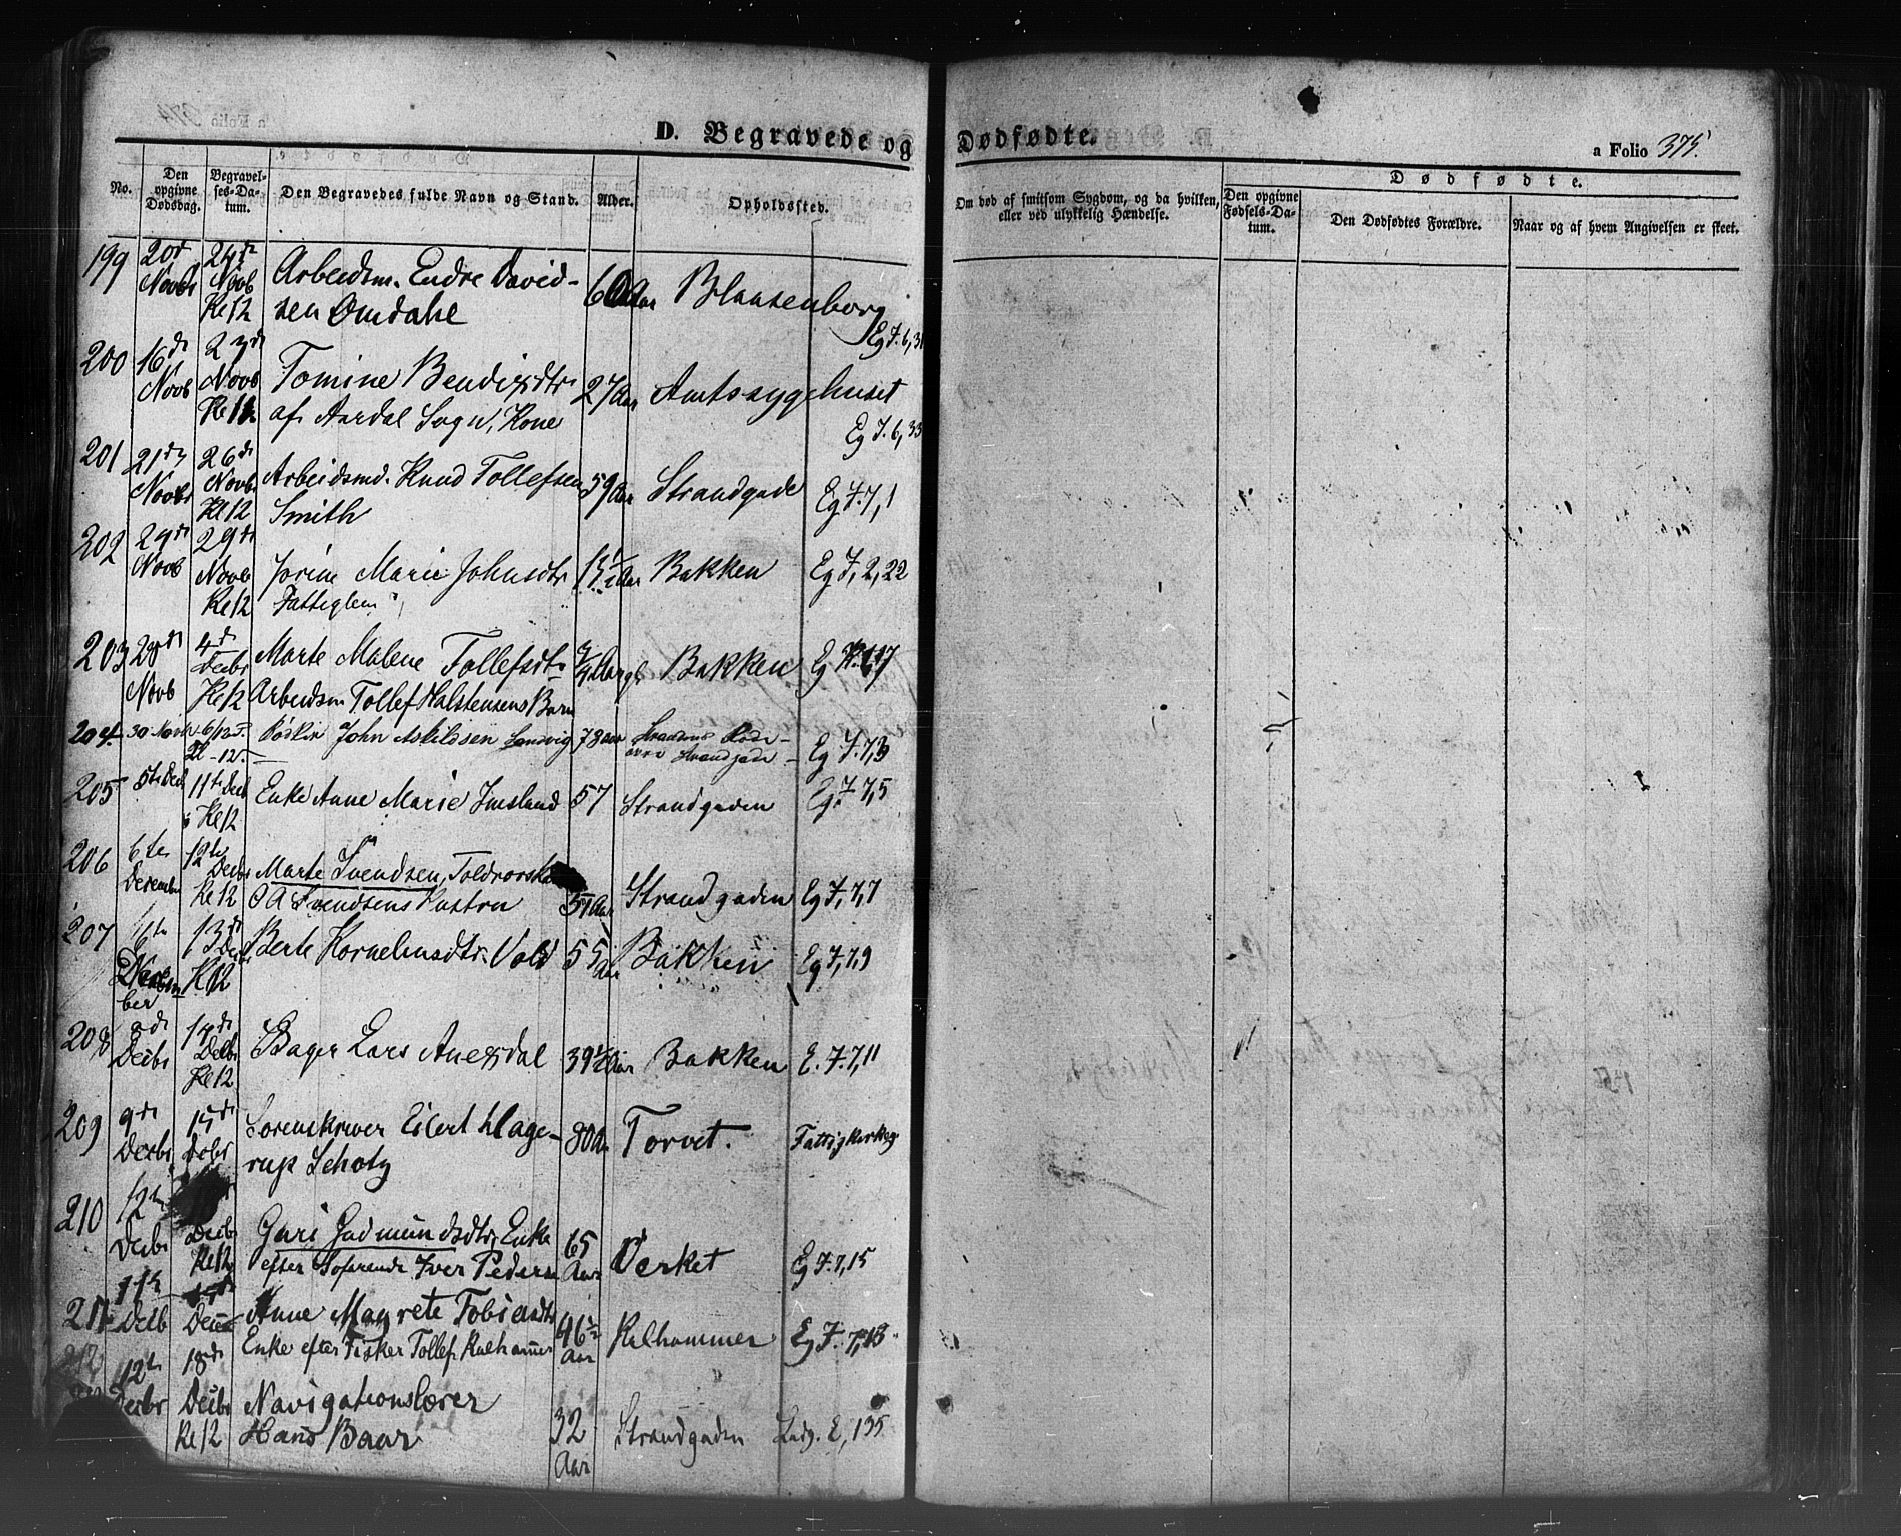 D. Begravede og Dødfødte.
a Folio 375.
No.
Den opgivne Dødsdag.
Begravelses-Datum.
Den Begravedes fulde Navn og Stand.
Alder.
Opholdssted.
Om død af smitsom Sygdom, og da hvilken,
eller ved ulykkelig Hændelse.
Dødfødte.
Den opgivne Fødsels-Datum.
Den Dødfødtes Forældre.
Naar og af hvem Angivelsen er skeet.
199 Novb 24de Novb Kl 12 Arbeidsm. Endre David-
sen Omdahl 60 Aar Blaasenborg
Eg F. 6,
200 16de Novb 27de Novb Tomine Bendixdtr
af Aardal Sogn, Kone 27 Aar Amtssygehuset
Eg F. 6, 33
201 21de Novbr 26de Novbr Kl 12 Arbeidsmd. Knud Tollefsen
Smith 59 Aar Strandgade Eg F. 7, 1
202 24de Novb 29de Novb Kl 12 Jorine Marie Johnsdtr
Fattiglem Aar Bakken Eg F, 2, 22
203 28de Novb 4de Decbr Kl 12 Marte Malene Tollefsdtr
Arbeidsm Tollef Halstensens Barn 3/4 Aar gl Bakken Eg
204. 30 Novbr 6/12 Kl - 12. Bødker John Askildsen Sandvig 78 aar
øvre Strandgade Eg F. 7, 3
205 5te Decb 11te Decb Kl 12 Enke Anne Marie Imsland 57 Strandgaden Eg. F 7, 5
206 6te December 12te Decbr Kl 12 Marte Svendsen, Toldrorsk
O A Svendsens Hustru 57 Aar Strandgaden Eg F, 7, 7
207 13de Kl 12 Berte Kornelinsdtr. Vold 55 Aar Bakken Eg F, 7, 9
208 Decbr 14de Decbr Kl 12 Bager Lars Anexdal 39 1/2 Aar Bakken E. F. 7, 11
209 9de Decbr 15de Decbr Sorenskriver Eilert Hage-
rup Schotz 80 Aar Torvet. Fattigkirkeg
210 12te Decbr Decbr Kl 12 Guri Gudmundsdtr, Enke
efter Soferende Iver Pedersen 65 Aar Verket Eg F. 7, 15
211 11te Decb Anne Magrete Tobiasdtr
Enke efter Fisker Tollef Kalhammer 46 1/2 Aar Kalhammer Eg F. 7, 13
212 12te Decbr 18de Decbr Kl 12 Navigationslærer
Hans Baar 32 Aar Strandgaden Ladg. E, 135